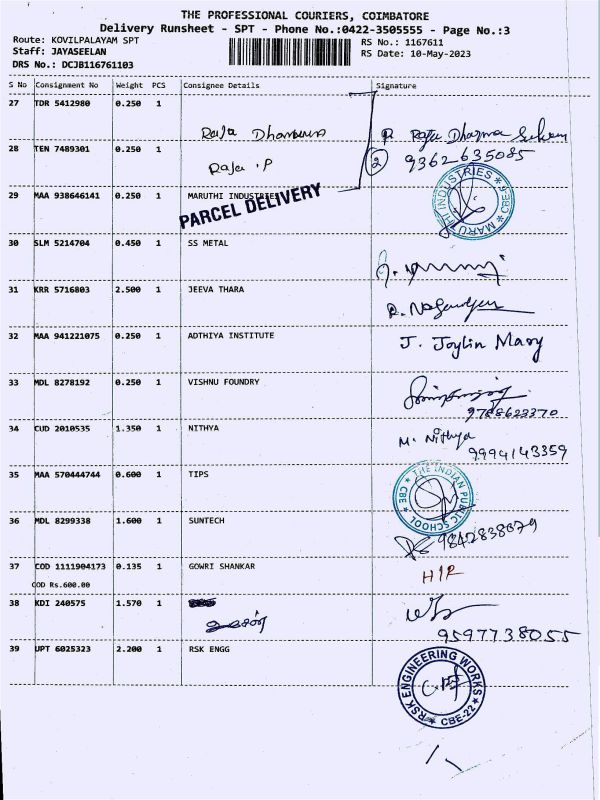 THE PROFESSIONAL COURIERS, COIMBATORE
Delivery Runsheet - SPT - Phone No.:0422-3505555 - Page No.:3
Route: KOVILPALAYAM SPT RS No.: 1167611
Staff: JAYASEELAN RS Date: 10-May-2023
DRS No.: DCJB116761103
S No Consignment No Weight PCS Consignee Details Signature
27 TDR 5412980 0.250 1
Raja Raja Dharma Selvam
28 TEN 7489301 0.250 1 2 9362635085
Raja .P
29 MAA 938646141 0.250 1 MARUTHI INDUSTRIES
PARCEL DELIVERY
MARUTHI INDUSTRIES CBE
30 SLM 5214704 0.450 1 SS METAL
31 KRR 5716803 2.500 1 JEEVA THARA
32 MAA 941221075 0.250 1 ADTHIYA INSTITUTE J. Joylin Mary
33 MDL 8278192 0.250 1 VISHNU FOUNDRY
9788623370
34 CUD 2010535 1.350 1 NITHYA M. Nithya
9994143359
35 MAA 570444744 0.600 1 TIPS
THE INDIAN PUBLIC SCHOOL CBE
36 MDL 8299338 1.600 1 SUNTECH
9842838079
37 COD 1111904173 0.135 1 GOWRI SHANKAR
COD Rs.600.00
38 KDI 240575 1.570 1
9597738055
39 UPT 6025323 2.200 1 RSK ENGG
RSK ENGINEERING WORKS CBE-22